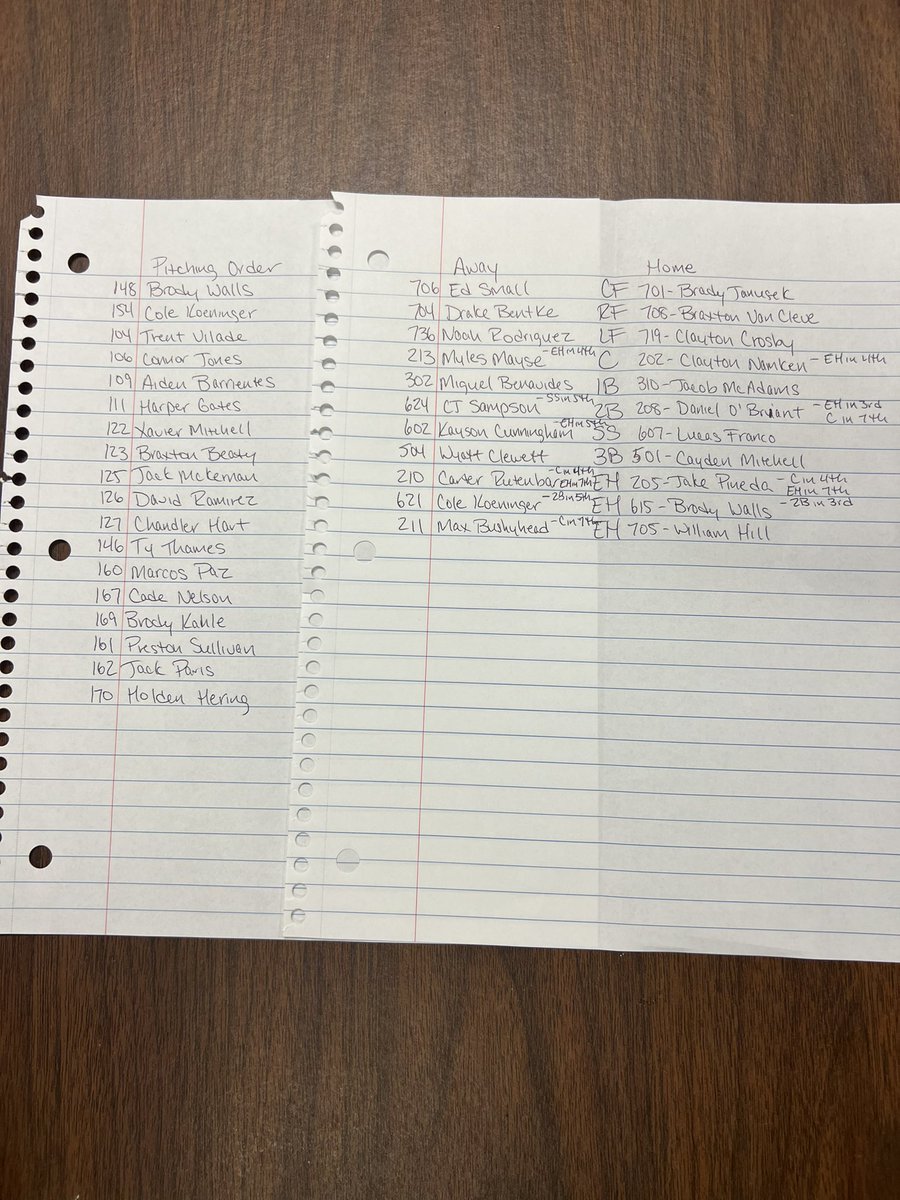 Pitching Order
148 Brody Walls
154 Cole Koeninger
104 Trent Vilade
106 Connor Jones
109 Aiden Barrientes
111 Harper Gates
122 Xavier Mitchell
123 Braxton Beaty
125 Jack McKernan
126 David Ramirez
127 Chandler Hart
146 Ty Thames
160 Marcos Paz
167 Cade Nelson
169 Brody Kahle
161 Preston Sullivan
162 Jack Paris
170 Holden Hering
Away Home
706 Ed Small CF 701- Brady Janusek
704 Drake Bentke RF 708- Braxton Van Cleve
736 Noah Rodriguez LF 719- Clayton Crosby
213 Myles Mayse - EH in 4th C 202- Clayton Namken - EH in 4th
302 Miguel Benavides 1B 310- Jacob McAdams
624 CJ Sampson - SS in 5th 2B 208- Daniel O'Bryant - EH in 3rd C in 7th
602 Kayson Cunningham - EH in 5th SS 607- Lucas Franco
504 Wyatt Clewett 3B 501- Cayden Mitchell
210 Carter Rutenbar - C in 4th EH in 7th EH 205- Jake Pineda - C in 4th EH in 7th
621 Cole Koeninger - 2B in 5th EH 615- Brody Walls - 2B in 3rd
211 Max Bushyhead - C in 7th EH 705- William Hill